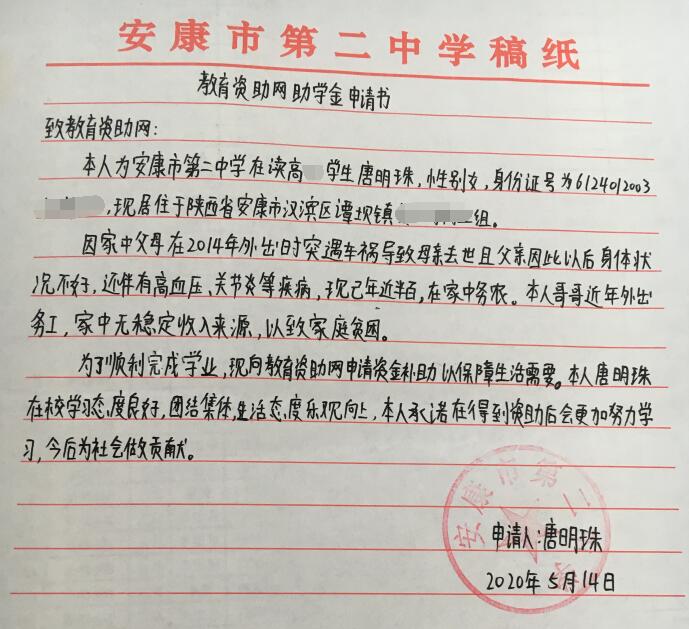 安康市第二中学稿纸
教育资助网助学金申请书
致教育资助网：
本人为安康市第二中学在读高 学生唐明珠，性别女，身份证号为6124012003
，现居住于陕西省安康市汉滨区谭坝镇 组。
因家中父母在2014年外出时突遇车祸导致母亲去世且父亲因此以后身体状
况不好，还伴有高血压、关节炎等疾病，现已年近半百，在家中务农。本人哥哥近年外出
务工，家中无稳定收入来源，以致家庭贫困。
为了顺利完成学业，现向教育资助网申请资金补助以保障生活需要。本人唐明珠
在校学习态度良好，团结集体，生活态度乐观向上，本人承诺在得到资助后会更加努力学
习，今后为社会做贡献。
安康市第二中学
申请人：唐明珠
2020年5月14日